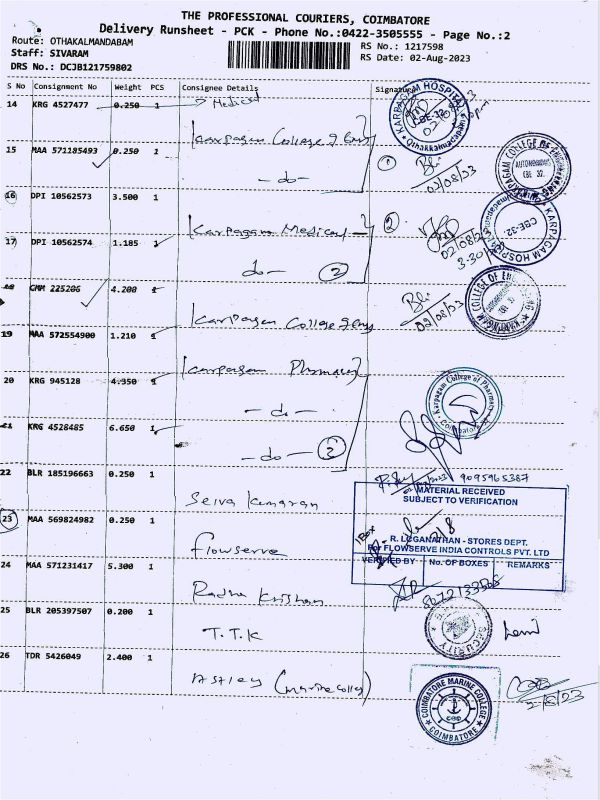 THE PROFESSIONAL COURIERS, COIMBATORE
Delivery Runsheet - PCK - Phone No.:0422-3505555 - Page No.:2
Route: OTHAKALMANDABAM
RS No.: 1217598
Staff: SIVARAM
RS Date: 02-Aug-2023
DRS No.: DCJB121759802
S No Consignment No Weight PCS Consignee Details Signature
14 KRG 4527477 0.250 1 Medical
KARPAGAM HOSPITAL
CBE-32
02/08/23
Karpagam College of Engg
15 MAA 571185493 0.250 1 -do- 1
02/08/23
KARPAGAM COLLEGE OF ENGINEERING
AUTONOMOUS
CBE 32.
16 DPI 10562573 3.500 1
Karpagam Medical 2
02/08/23
3-30
KARPAGAM HOSPITAL
CBE-32
17 DPI 10562574 1.185 1
do- 2
18 CMM 225206 4.200 1
Karpagam College of Engg
02/08/23
19 MAA 572554900 1.210 1
Karpagam Pharmacy
20 KRG 945128 4.350 1
-do-
Karpagam College of Pharmacy
Coimbatore
21 KRG 4528485 6.650 1
-do- 2
22 BLR 185196663 0.250 1
9095965387
Selva Kumaran
MATERIAL RECEIVED
SUBJECT TO VERIFICATION
23 MAA 569824982 0.250 1
Flowserve
1 Box
2/8
R. LOGANATHAN - STORES DEPT.
For FLOWSERVE INDIA CONTROLS PVT. LTD
VERIFIED BY No. OF BOXES REMARKS
24 MAA 571231417 5.300 1
Radha Krishnan
25 BLR 205397507 0.200 1
T.T.K
SECURITY
26 TDR 5426049 2.400 1
(Marine College)
COIMBATORE MARINE COLLEGE
COIMBATORE
2/8/23